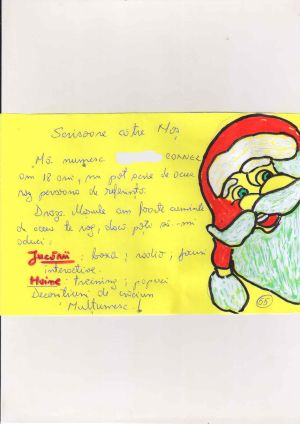 Scrisoare către Moș
Mă numesc CORNEL
am 18 ani, nu pot scrie de aceea
rog persoana de referință.
Dragă Moșule am foarte cuminte
de aceea te rog, dacă poți să-mi
aduci:
Jucării: boxă; radio; jocuri
interactive.
Haine: treining; papuci
Decorațiuni de crăciun
Mulțumesc!
65